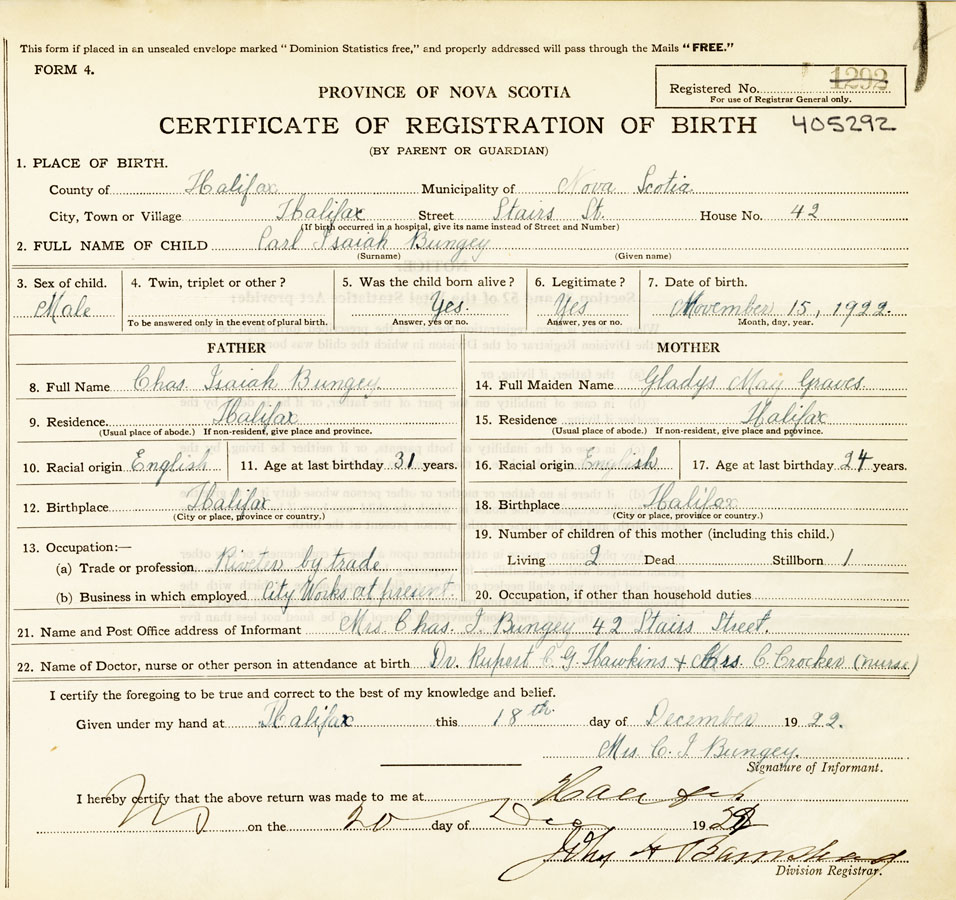 This form if placed in an unsealed envelope marked "Dominion Statistics free," and properly addressed will pass through the Mails "FREE."
FORM 4.
1292
Registered No.
For use of Registrar General only.
PROVINCE OF NOVA SCOTIA
CERTIFICATE OF REGISTRATION OF BIRTH 405292
(BY PARENT OR GUARDIAN)
1. PLACE OF BIRTH.
County of Halifax Municipality of Nova Scotia
City, Town or Village Halifax Street Stairs St. House No. 42
(If birth occurred in a hospital, give its name instead of Street and Number)
2. FULL NAME OF CHILD Carl Isaiah Bungey
(Surname) (Given name)
3. Sex of child. 4. Twin, triplet or other? 5. Was the child born alive? 6. Legitimate? 7. Date of birth.
Male Yes. Yes November 15, 1922.
To be answered only in the event of plural birth. Answer, yes or no. Answer, yes or no. Month, day, year.
FATHER MOTHER
8. Full Name Chas. Isaiah Bungey. 14. Full Maiden Name Gladys May Graves
9. Residence. Halifax 15. Residence Halifax
(Usual place of abode.) If non-resident, give place and province. (Usual place of abode.) If non-resident, give place and province.
10. Racial origin English 11. Age at last birthday 31 years. 16. Racial origin English 17. Age at last birthday 24 years.
12. Birthplace Halifax 18. Birthplace Halifax
(City or place, province or country.) (City or place, province or country.)
19. Number of children of this mother (including this child.)
13. Occupation:—
(a) Trade or profession Riveter by trade Living 2 Dead Stillborn 1
(b) Business in which employed City Works at present. 20. Occupation, if other than household duties
21. Name and Post Office address of Informant Mrs. Chas. I. Bungey 42 Stairs Street.
22. Name of Doctor, nurse or other person in attendance at birth Dr. Rupert C. G. Hawkins + Mrs. C. Crocker (nurse)
I certify the foregoing to be true and correct to the best of my knowledge and belief.
Given under my hand at Halifax this 18th day of December 1922.
Mrs. C. I. Bungey.
Signature of Informant.
I hereby certify that the above return was made to me at Halifax
NS on the 20 day of Dec 1922
John H Barnstead
Division Registrar.